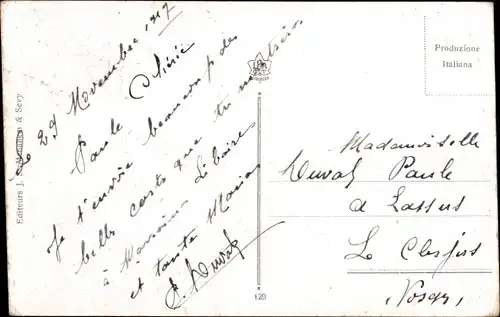 Le 29 Novembre 1917
Paule Chérie
Je t'envoie beaucoup de
belles cartes que tu montreras
à Marraine Libaire
et tante Maria
J. Duval
Editeurs J. & Sevy
129
Produzione
Italiana
Mademoiselle
Duval Paule
a Lassus
Le
Vosges